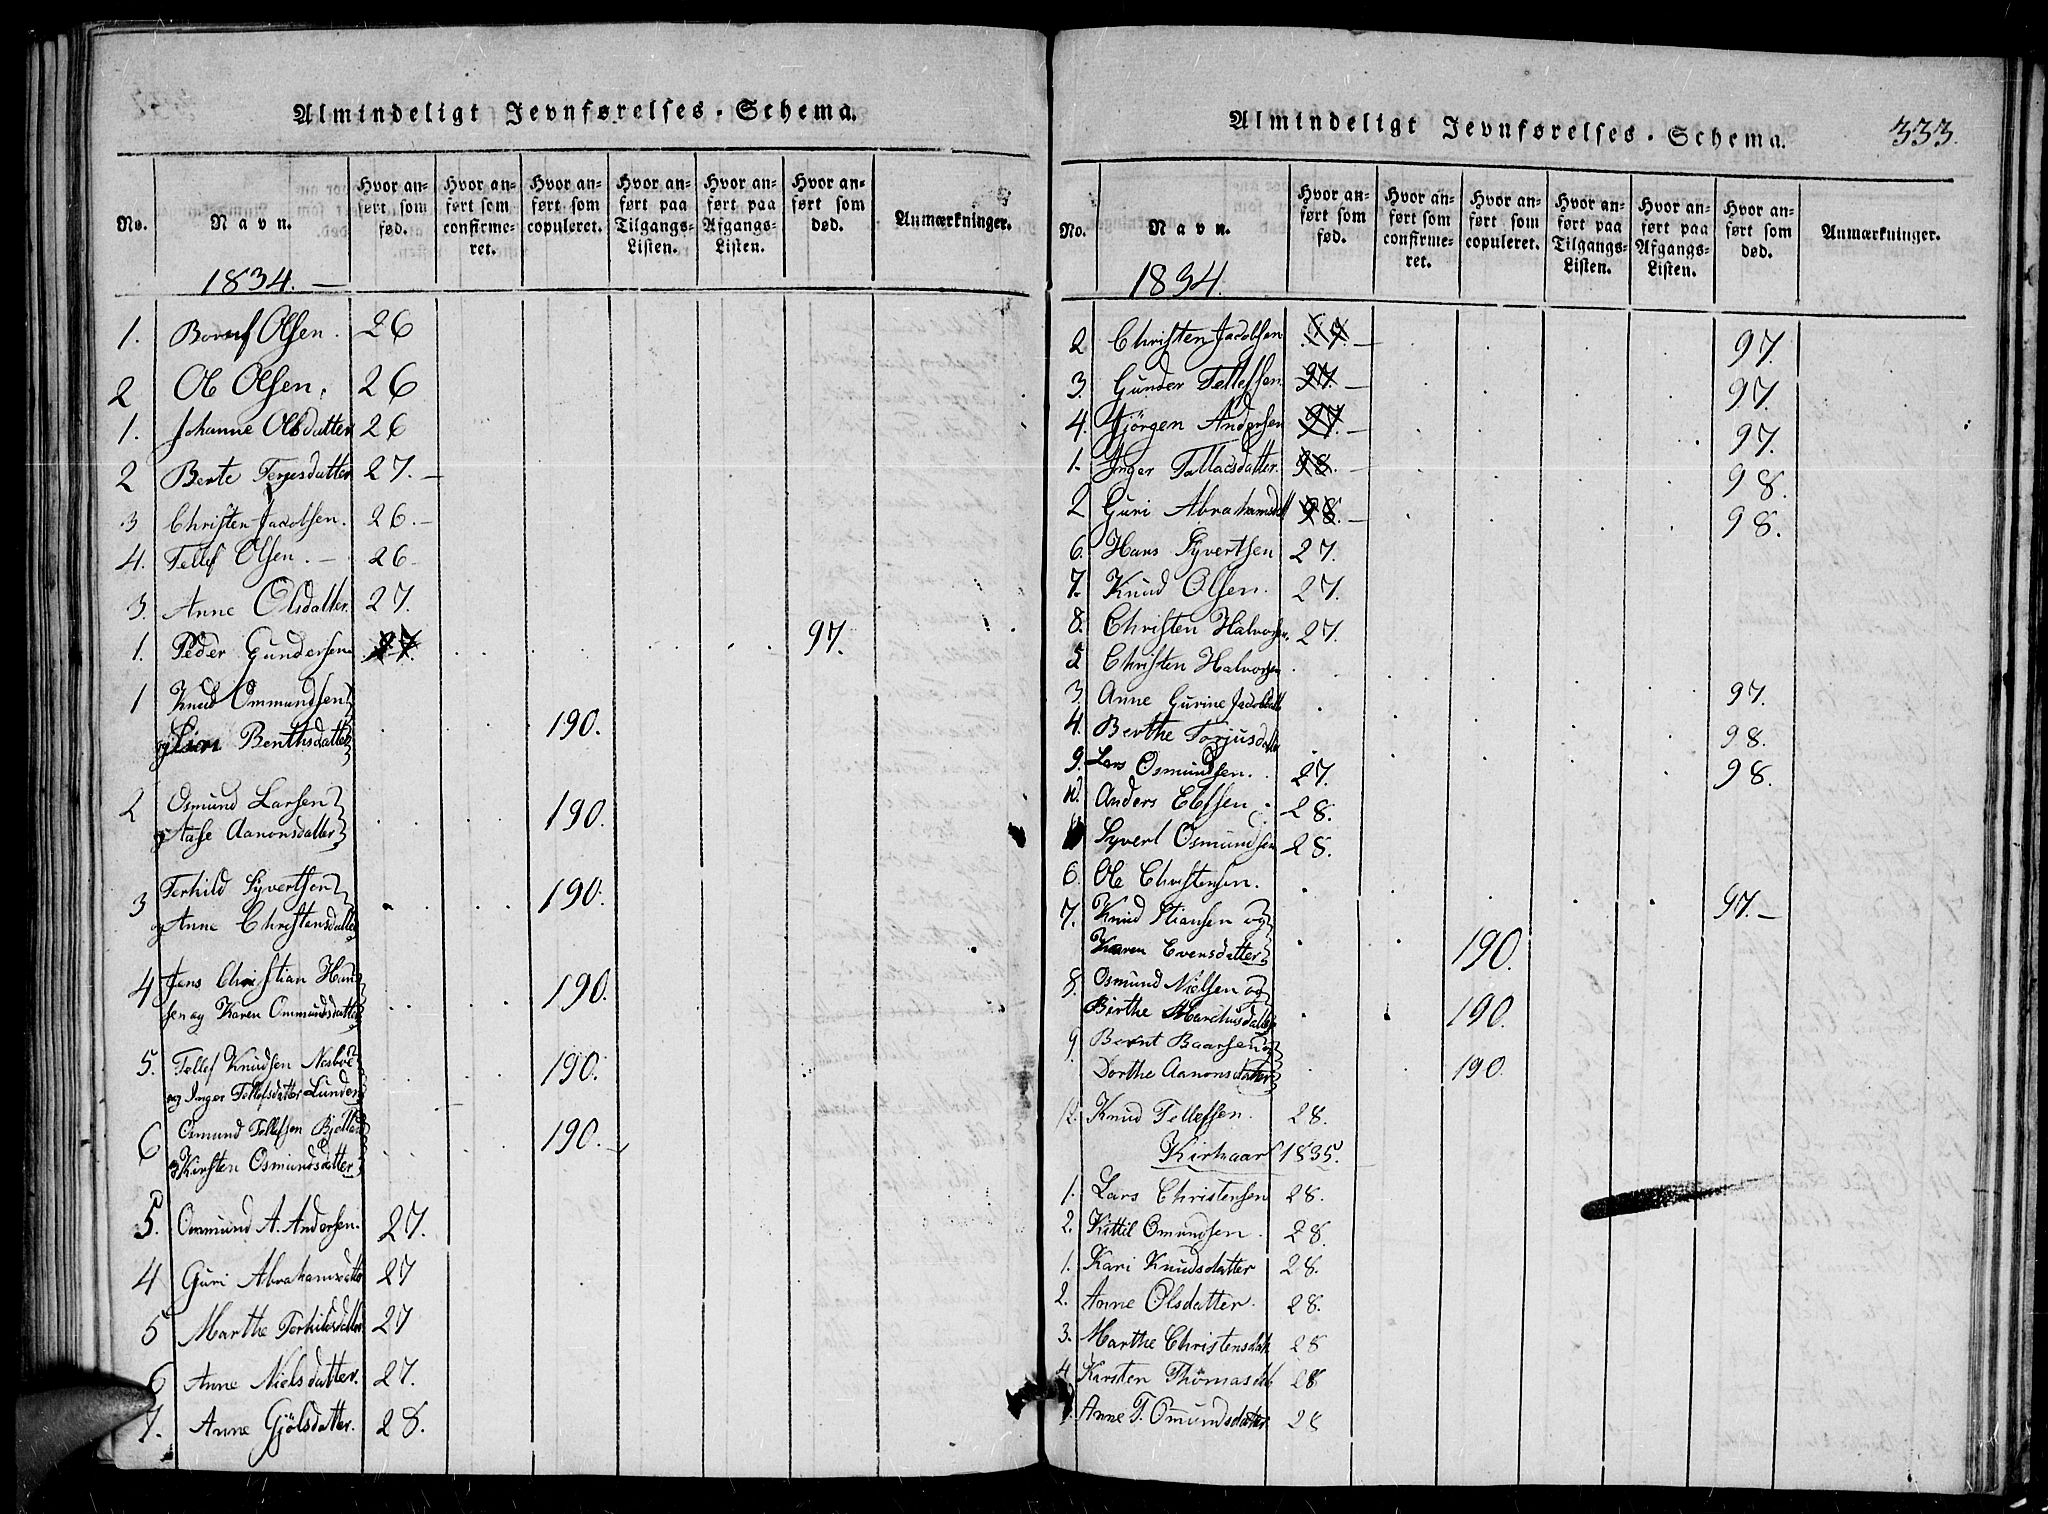 Almindeligt Jevnførelses-Schema.
No.
Navn.
Hvor anført som fød.
Hvor anført som confirmeret.
Hvor anført som copuleret.
Hvor anført paa Tilgangs-Listen.
Hvor anført paa Afgangs-Listen.
Hvor anført som død.
Anmærkninger.
1834.
1. Olsen. 26
2 Ole Olsen. 26
1. Johanne Olsdatter 26
2 Berte Terjesdatter 27.
3 Christen Jacobsen. 26.
4. Tellef Olsen. 26
3. Anne Olsdatter. 27.
1. Peder Gundersen 97.
1 Knud Ommundsen
og Siri Benthsdatter 190.
2 Osmund Larsen
og Aase Aanonsdatter 190.
3 Terkild Syvertsen
og Anne Christensdatter 190.
4 Jens Christian Han
sen og Karen Ommundsdatter 190.
5. Tellef Knudsen
og Inger Tellefsdatter Lunden 190.
6 Osmund Tellefsen
og Kirsten Osmundsdatter 190.
5. Ommund A. Andersen. 27.
4 Guri Abrahamsdatter 27
5 Marthe Terkildsdatter 27
6 Anne Nielsdatter. 27.
7. Anne Gjölsdatter. 28.
Almindeligt Jevnførelses-Schema.
333.
No.
Navn.
Hvor anført som fød.
Hvor anført som confirmeret.
Hvor anført som copuleret.
Hvor anført paa Tilgangs-Listen.
Hvor anført paa Afgangs-Listen.
Hvor anført som død.
Anmærkninger.
1834.
2 Christen Jacobsen 97.
3. Gunder Tellefsen 97. 97.
4. Jörgen Andersen 97. 97.
1. Inger Tallacsdatter. 98. 98.
2 Guri Abrahamsdatt 98. 98.
6. Hans Syvertsen 27.
7. Knud Olsen. 27.
8. Christen Halvorsen. 27.
5 Christen Halvorsen 97.
3. Anne Gurine Jacobsdatt 98.
4. Berthe Torjusdatter 98.
9. Lars Osmundsen. 27.
10. Anders Ellefsen 28.
Syvert Osmundsen 28.
6. Ole Christensen. 97.
7. Knud Stiansen og
Karen Evensdatter 190.
8. Osmund Nielsen og
Birthe Marchusdatter 190.
9 Bernt Baarsen og
Dorthe Aanonsdatter 190.
12. Knud Tellefsen. 28.
Kirkaar 1835.
1. Lars Christensen 28.
2. Kittil Omundsen. 28.
1. Kari Knudsdatter 28.
2. Anne Olsdatter. 28.
3. Marthe Christensdatt 28
4 Kirsten Thomasdtt 28
Anne T. Omundsdatter. 28